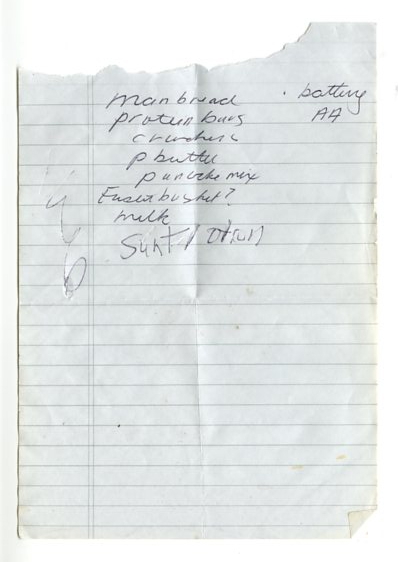 man bread
protein bars
crackers
p butter
pancake mix
Easter basket?
milk
Suntlotion
. battery
AA